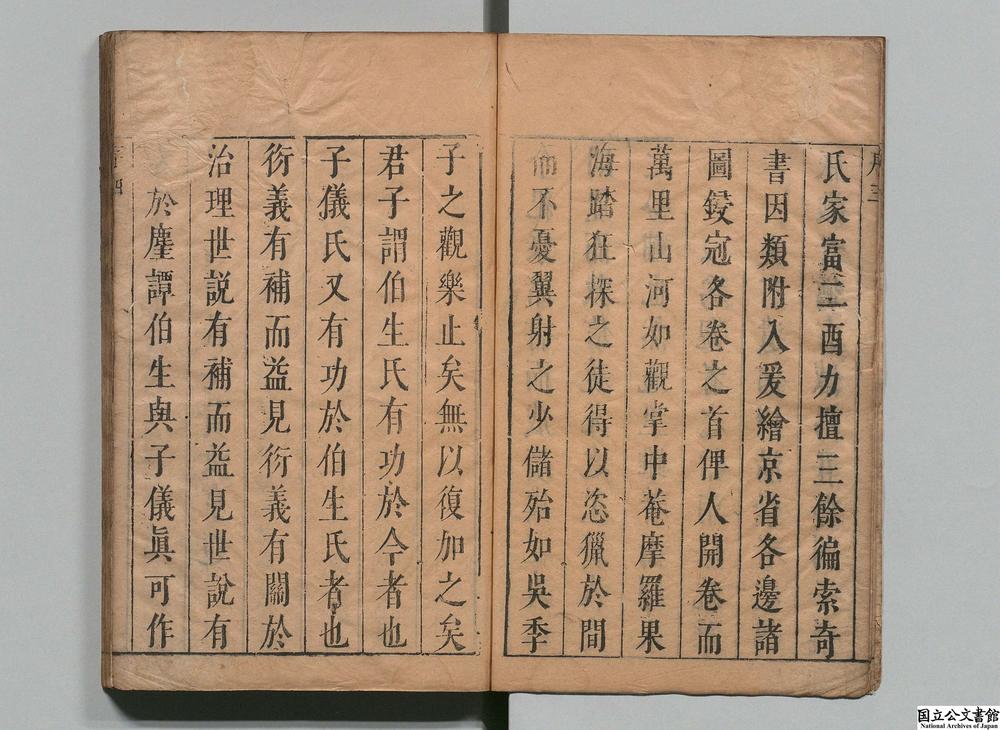 序 三
氏家富二酉力擅三餘徧索奇
書因類附入爰繪京省各邊諸
圖鋟冦各卷之首俾人開卷而
萬里山河如觀掌中菴摩羅果
海踏狂探之徒得以恣獵於間
而不憂翼射之少儲殆如吳季
子之觀樂止矣無以復加之矣
君子謂伯生氏有功於今者也
子儀氏又有功於伯生氏者也
衍義有補而益見衍義有關於
治理世説有補而益見世説有
於麈譚伯生與子儀眞可作
四
国立公文書館
National Archives of Japan